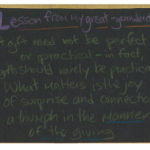 Lesson from My great-grandma
A gift need not be perfect
or practical - in fact,
gifts should rarely be practical
What matters is the joy
of surprise and connection
a triumph in the manner
of the giving